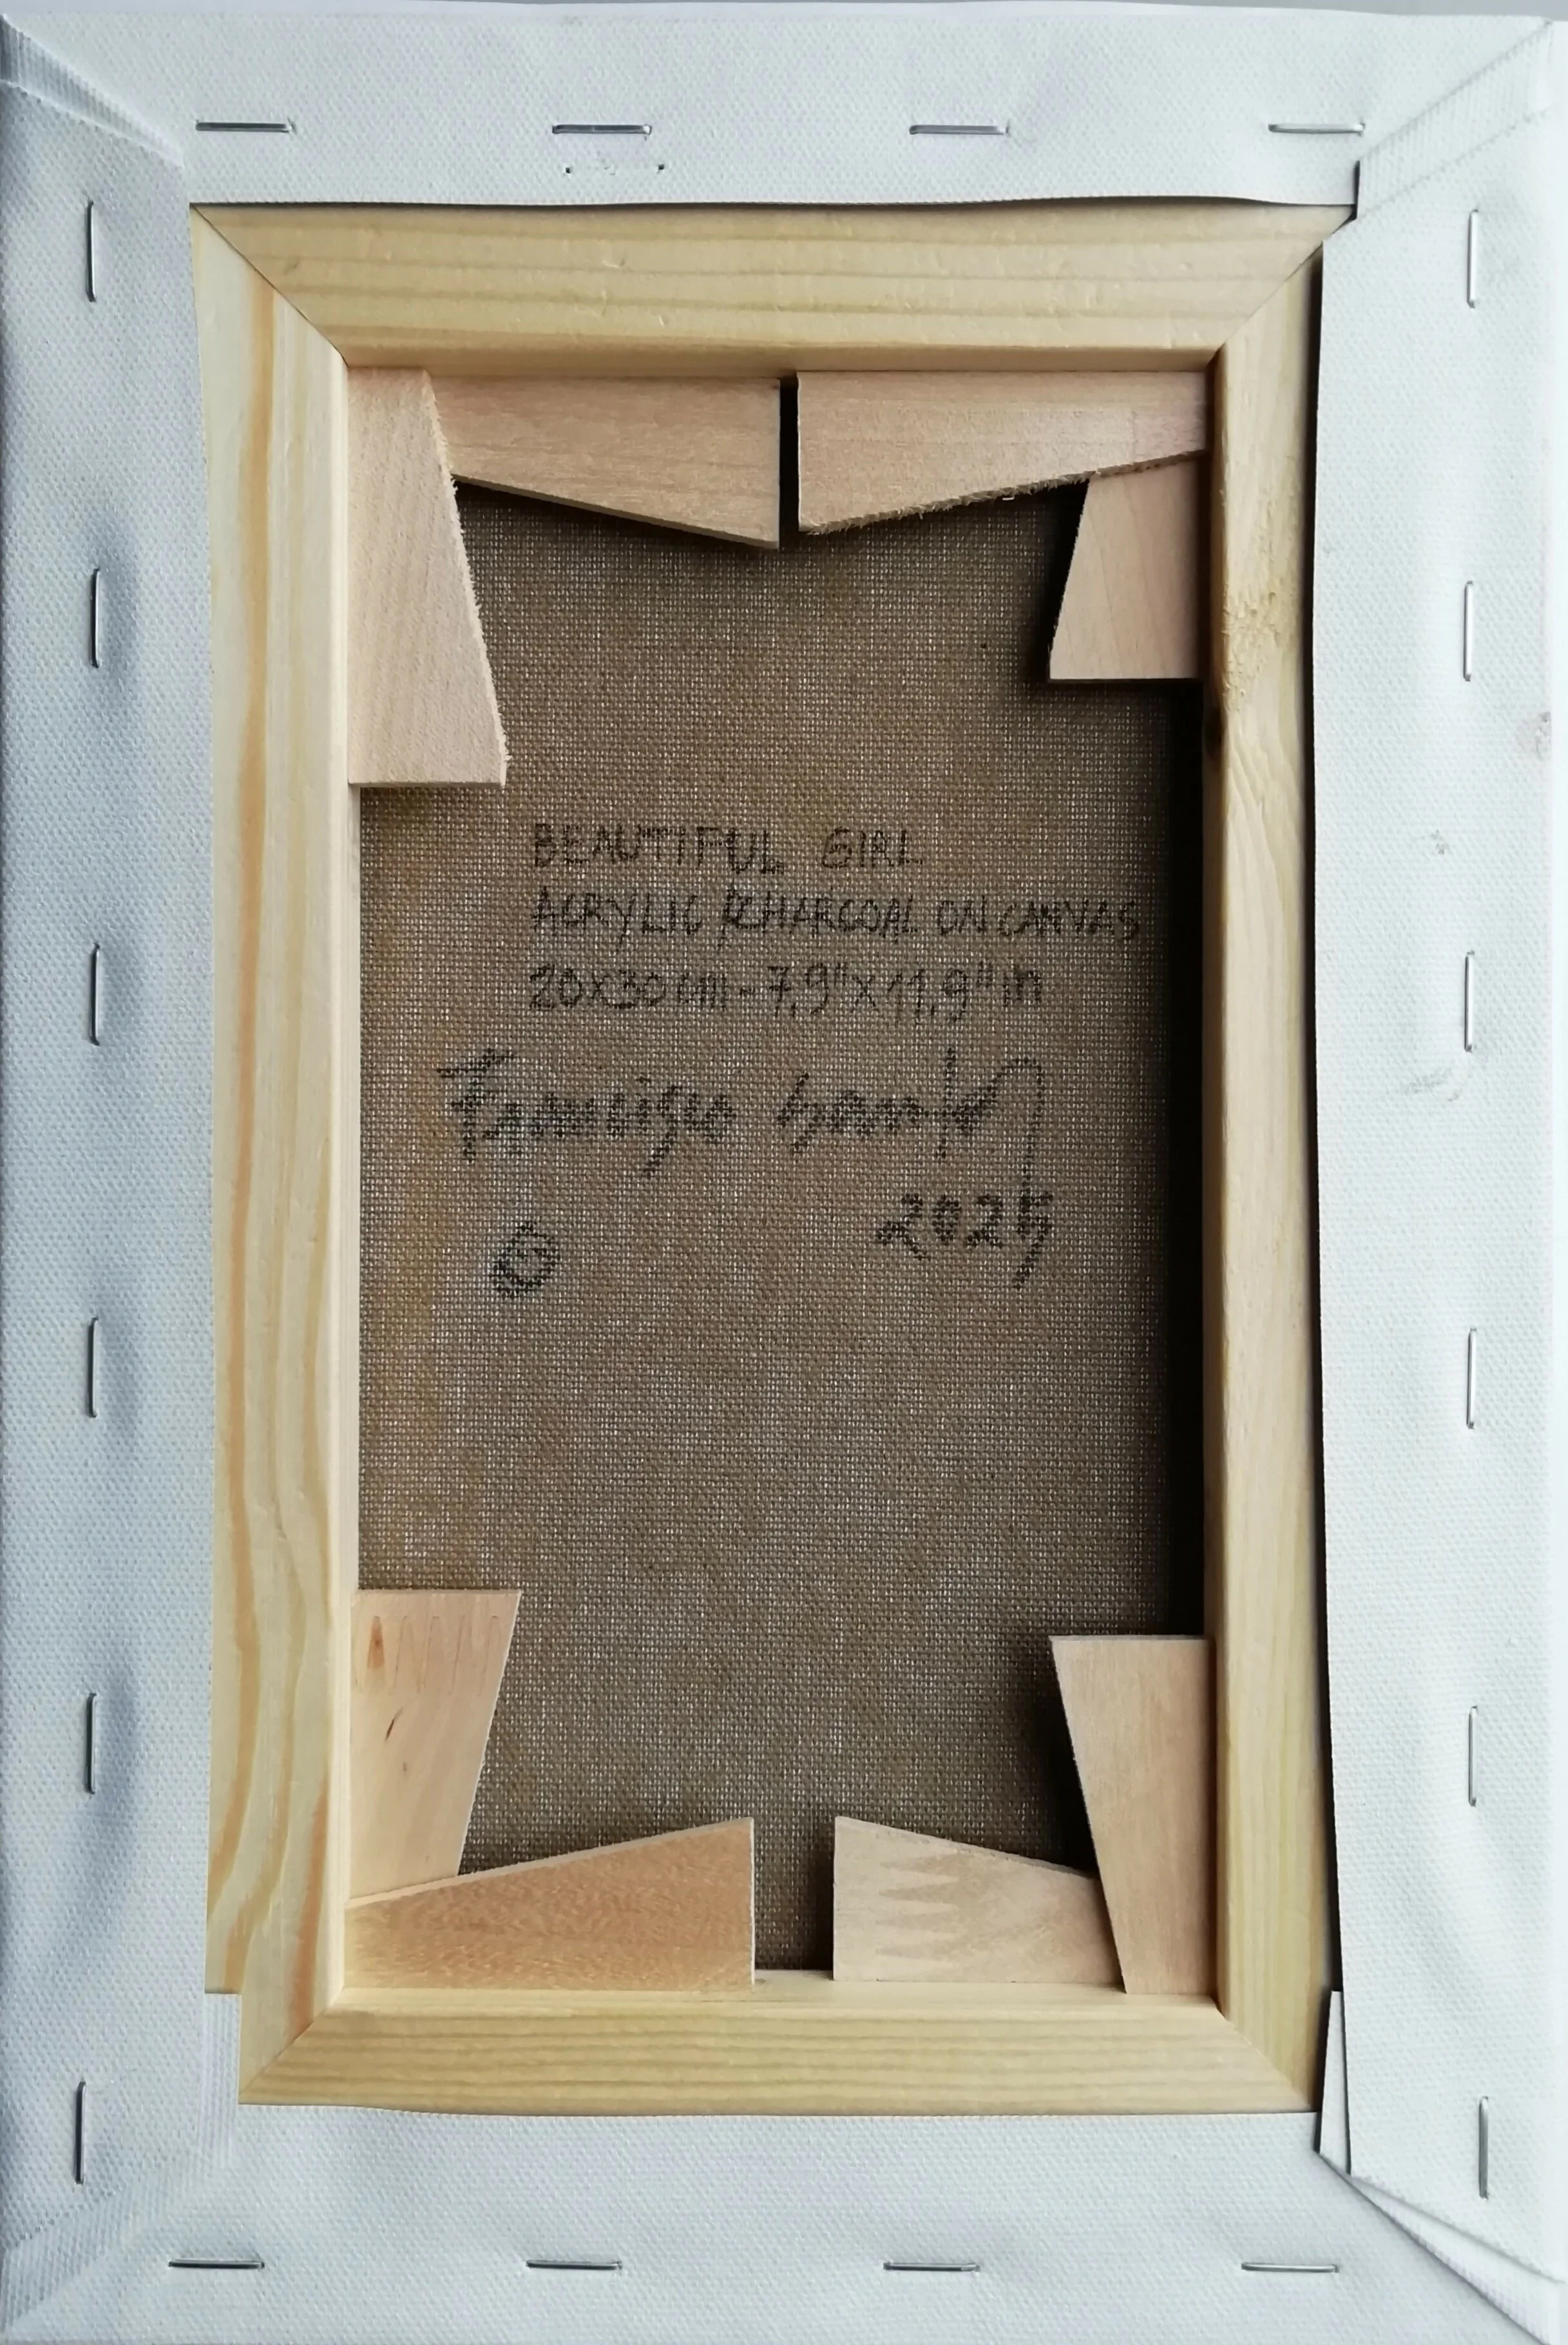 BEAUTIFUL GIRL
ACRYLIC & CHARCOAL ON CANVAS
20x30 cm - 7,9" x 11,9" in
Francisco Santos
2025